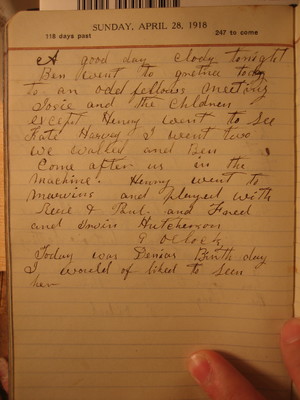 SUNDAY, APRIL 28, 1918
118 days past 247 to come
A good day Clody tonight
Ben went to gretna today
to an odd fellows meeting
Josie and the Chldren
except Henry went to see
Kate Harvey I went two
we walked and Ben
Come after us in the
machine. Henry went to
Marvins and played with
Reed & Paul and
and Irwin Hutcherson
9 Oclock
Today was Birth day
I would of liked to seen
her